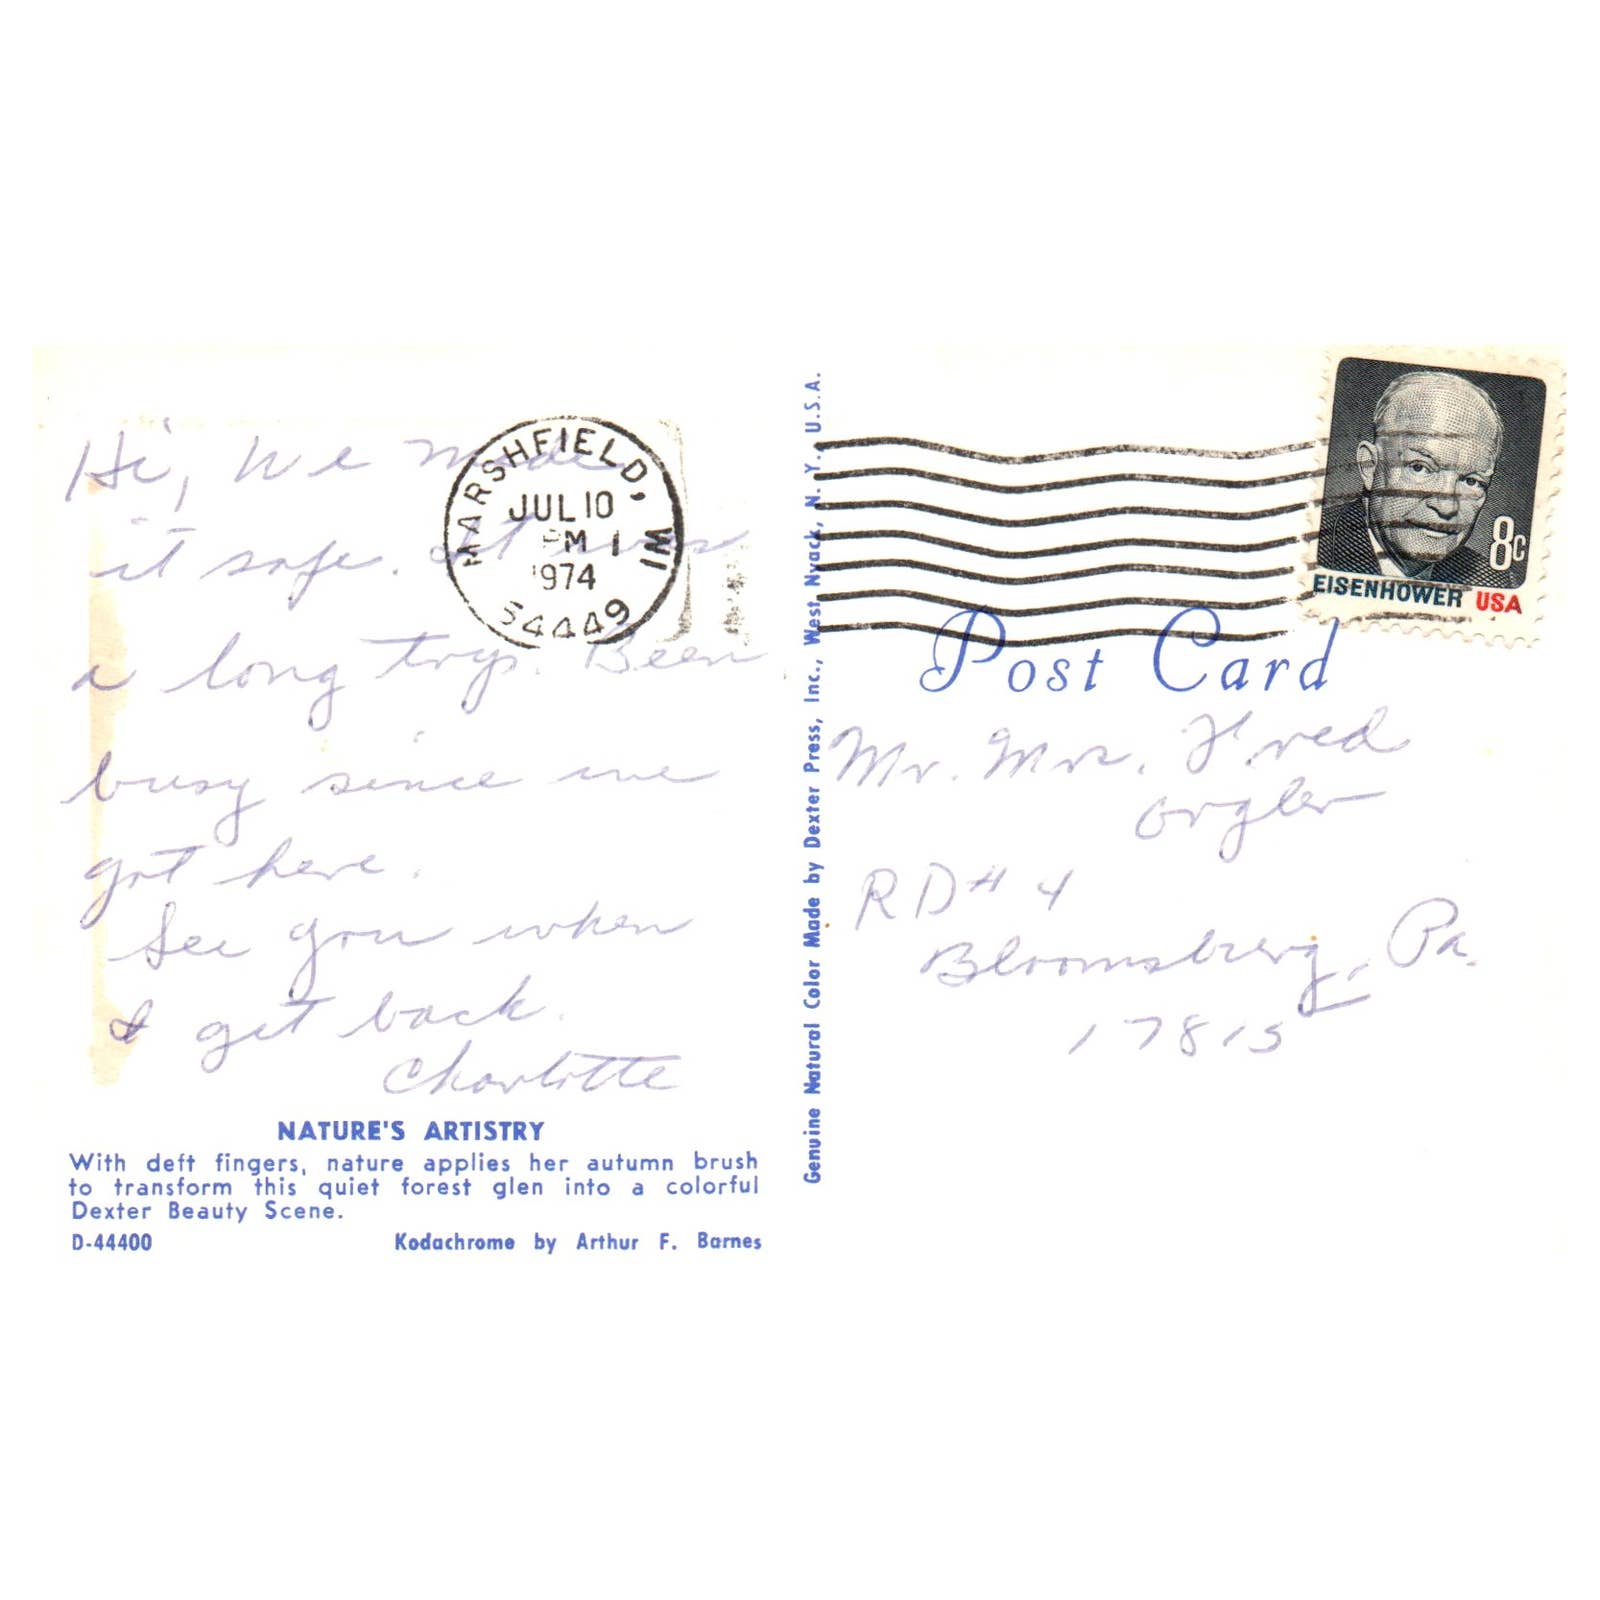 Hi, We made
it safe. It was
a long tryp. Been
busy since we
got here.
See you when
I get back.
Charlotte
NATURE'S ARTISTRY
With deft fingers, nature applies her autumn brush
to transform this quiet forest glen into a colorful
Dexter Beauty Scene.
D-44400 Kodachrome by Arthur F. Barnes
MARSHFIELD, WI
JUL 10
PM 1
1974
54449
Genuine Natural Color Made by Dexter Press, Inc., West Nyack, N. Y., U.S.A.
8c
EISENHOWER USA
Post Card
Mr. Mrs. Fred
Orgler
RD # 4
Bloomsburg, Pa.
17815